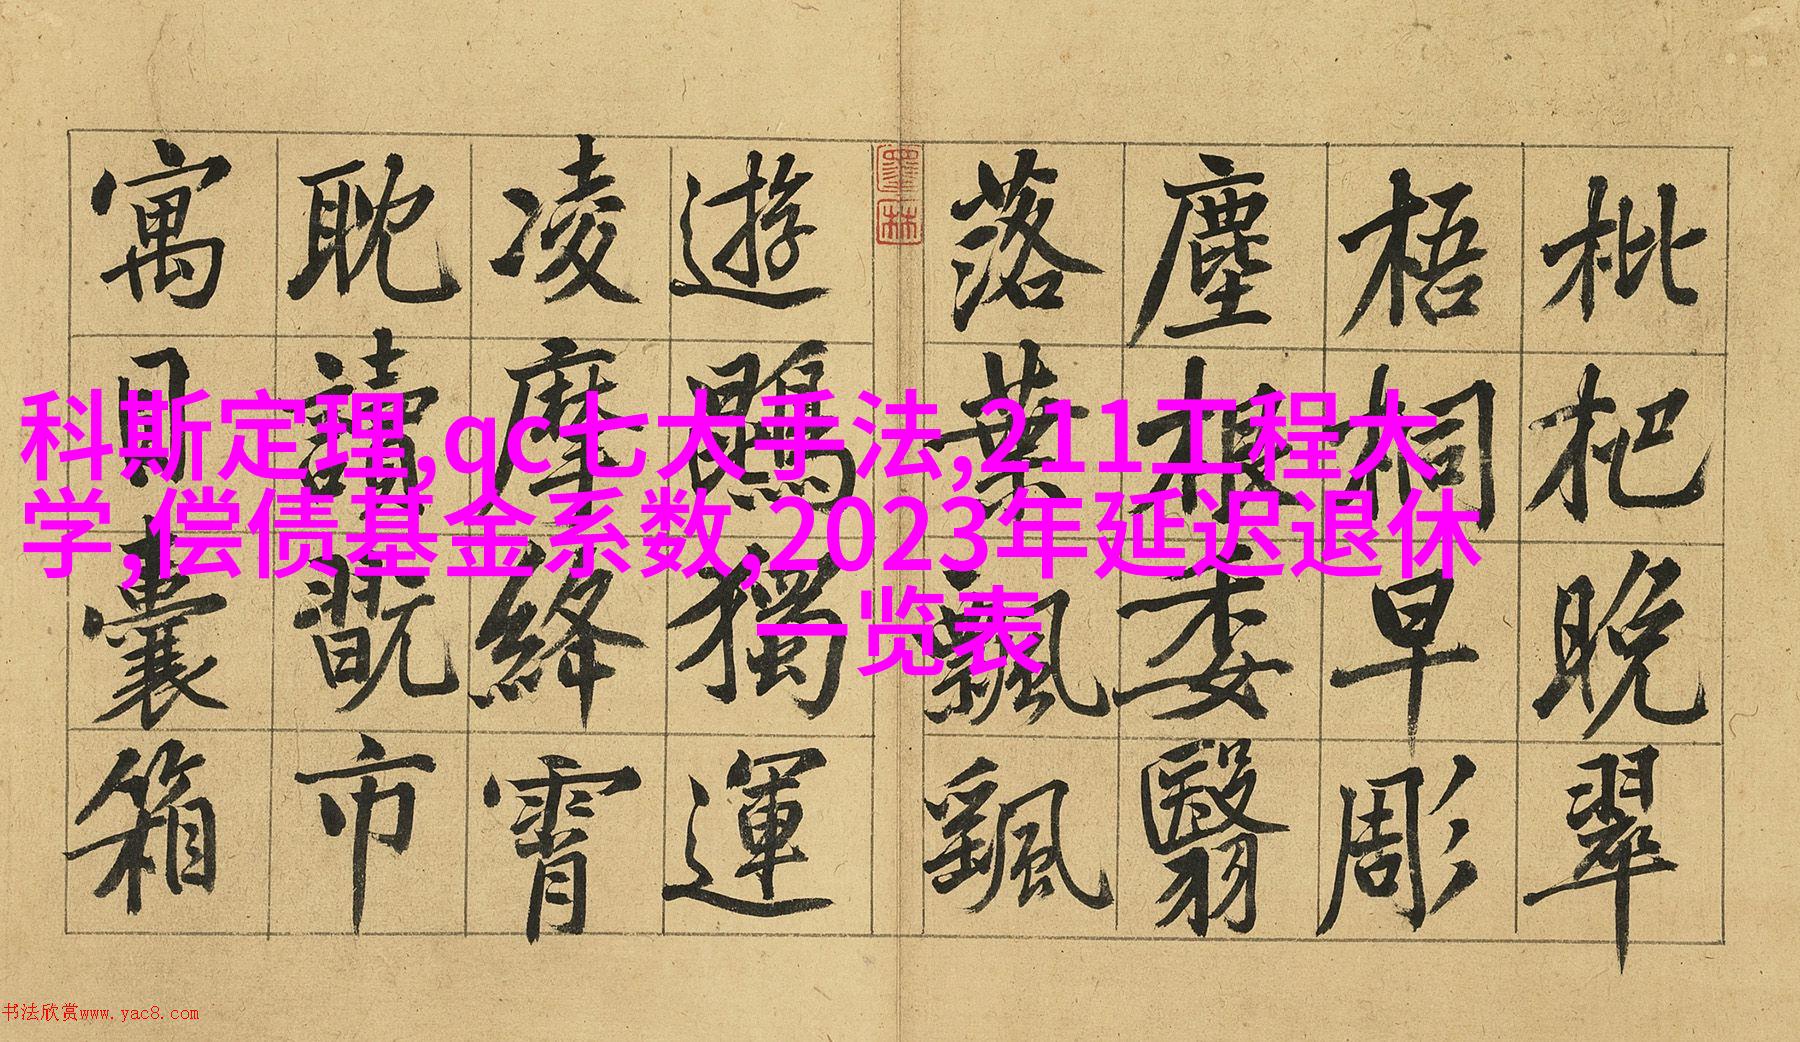 枇杷晚翠
梧桐早彫
塵根委翳
落葉飄颻
遊鵾獨運
凌摩絳霄
耽讀翫市
寓目囊箱
墨林
科斯定理,qc七大手法,211工程大
学,偿债基金系数,2023年延迟退休
一览表
书法欣赏www.yac8.com